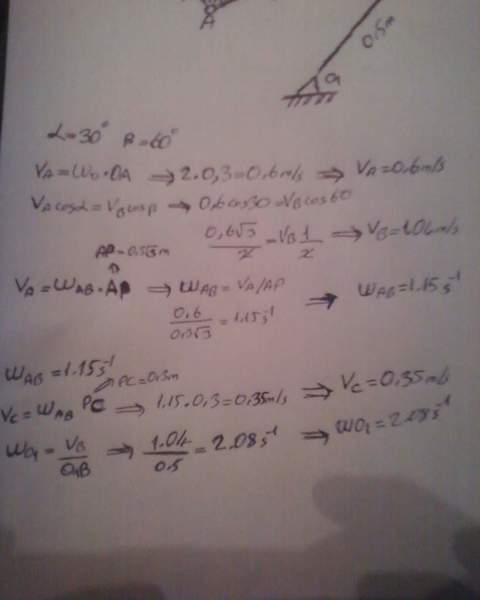 A
0.5m
O₁
α=30° β=60°
VA=ω0·OA ⇒ 2·0,3=0.6m/s ⇒ VA=0.6m/s
VA cosα=VB cosβ → 0.6cos30=VBcos60
0,6√3/2=VB 1/2 ⇒ VB=1.04m/s
AP=0.3√3m
VA=ωAB·AP ⇒ ωAB=VA/AP ⇒ ωAB=1.15s⁻¹
0.6/0.3√3=1.15s⁻¹
ωAB=1.15s⁻¹
PC=0.3m
VC=ωAB PC ⇒ 1.15·0,3=0,35m/s ⇒ VC=0,35m/s
ωO1=VB/O1B ⇒ 1.04/0.5=2.08s⁻¹ ⇒ ωO1=2.08s⁻¹